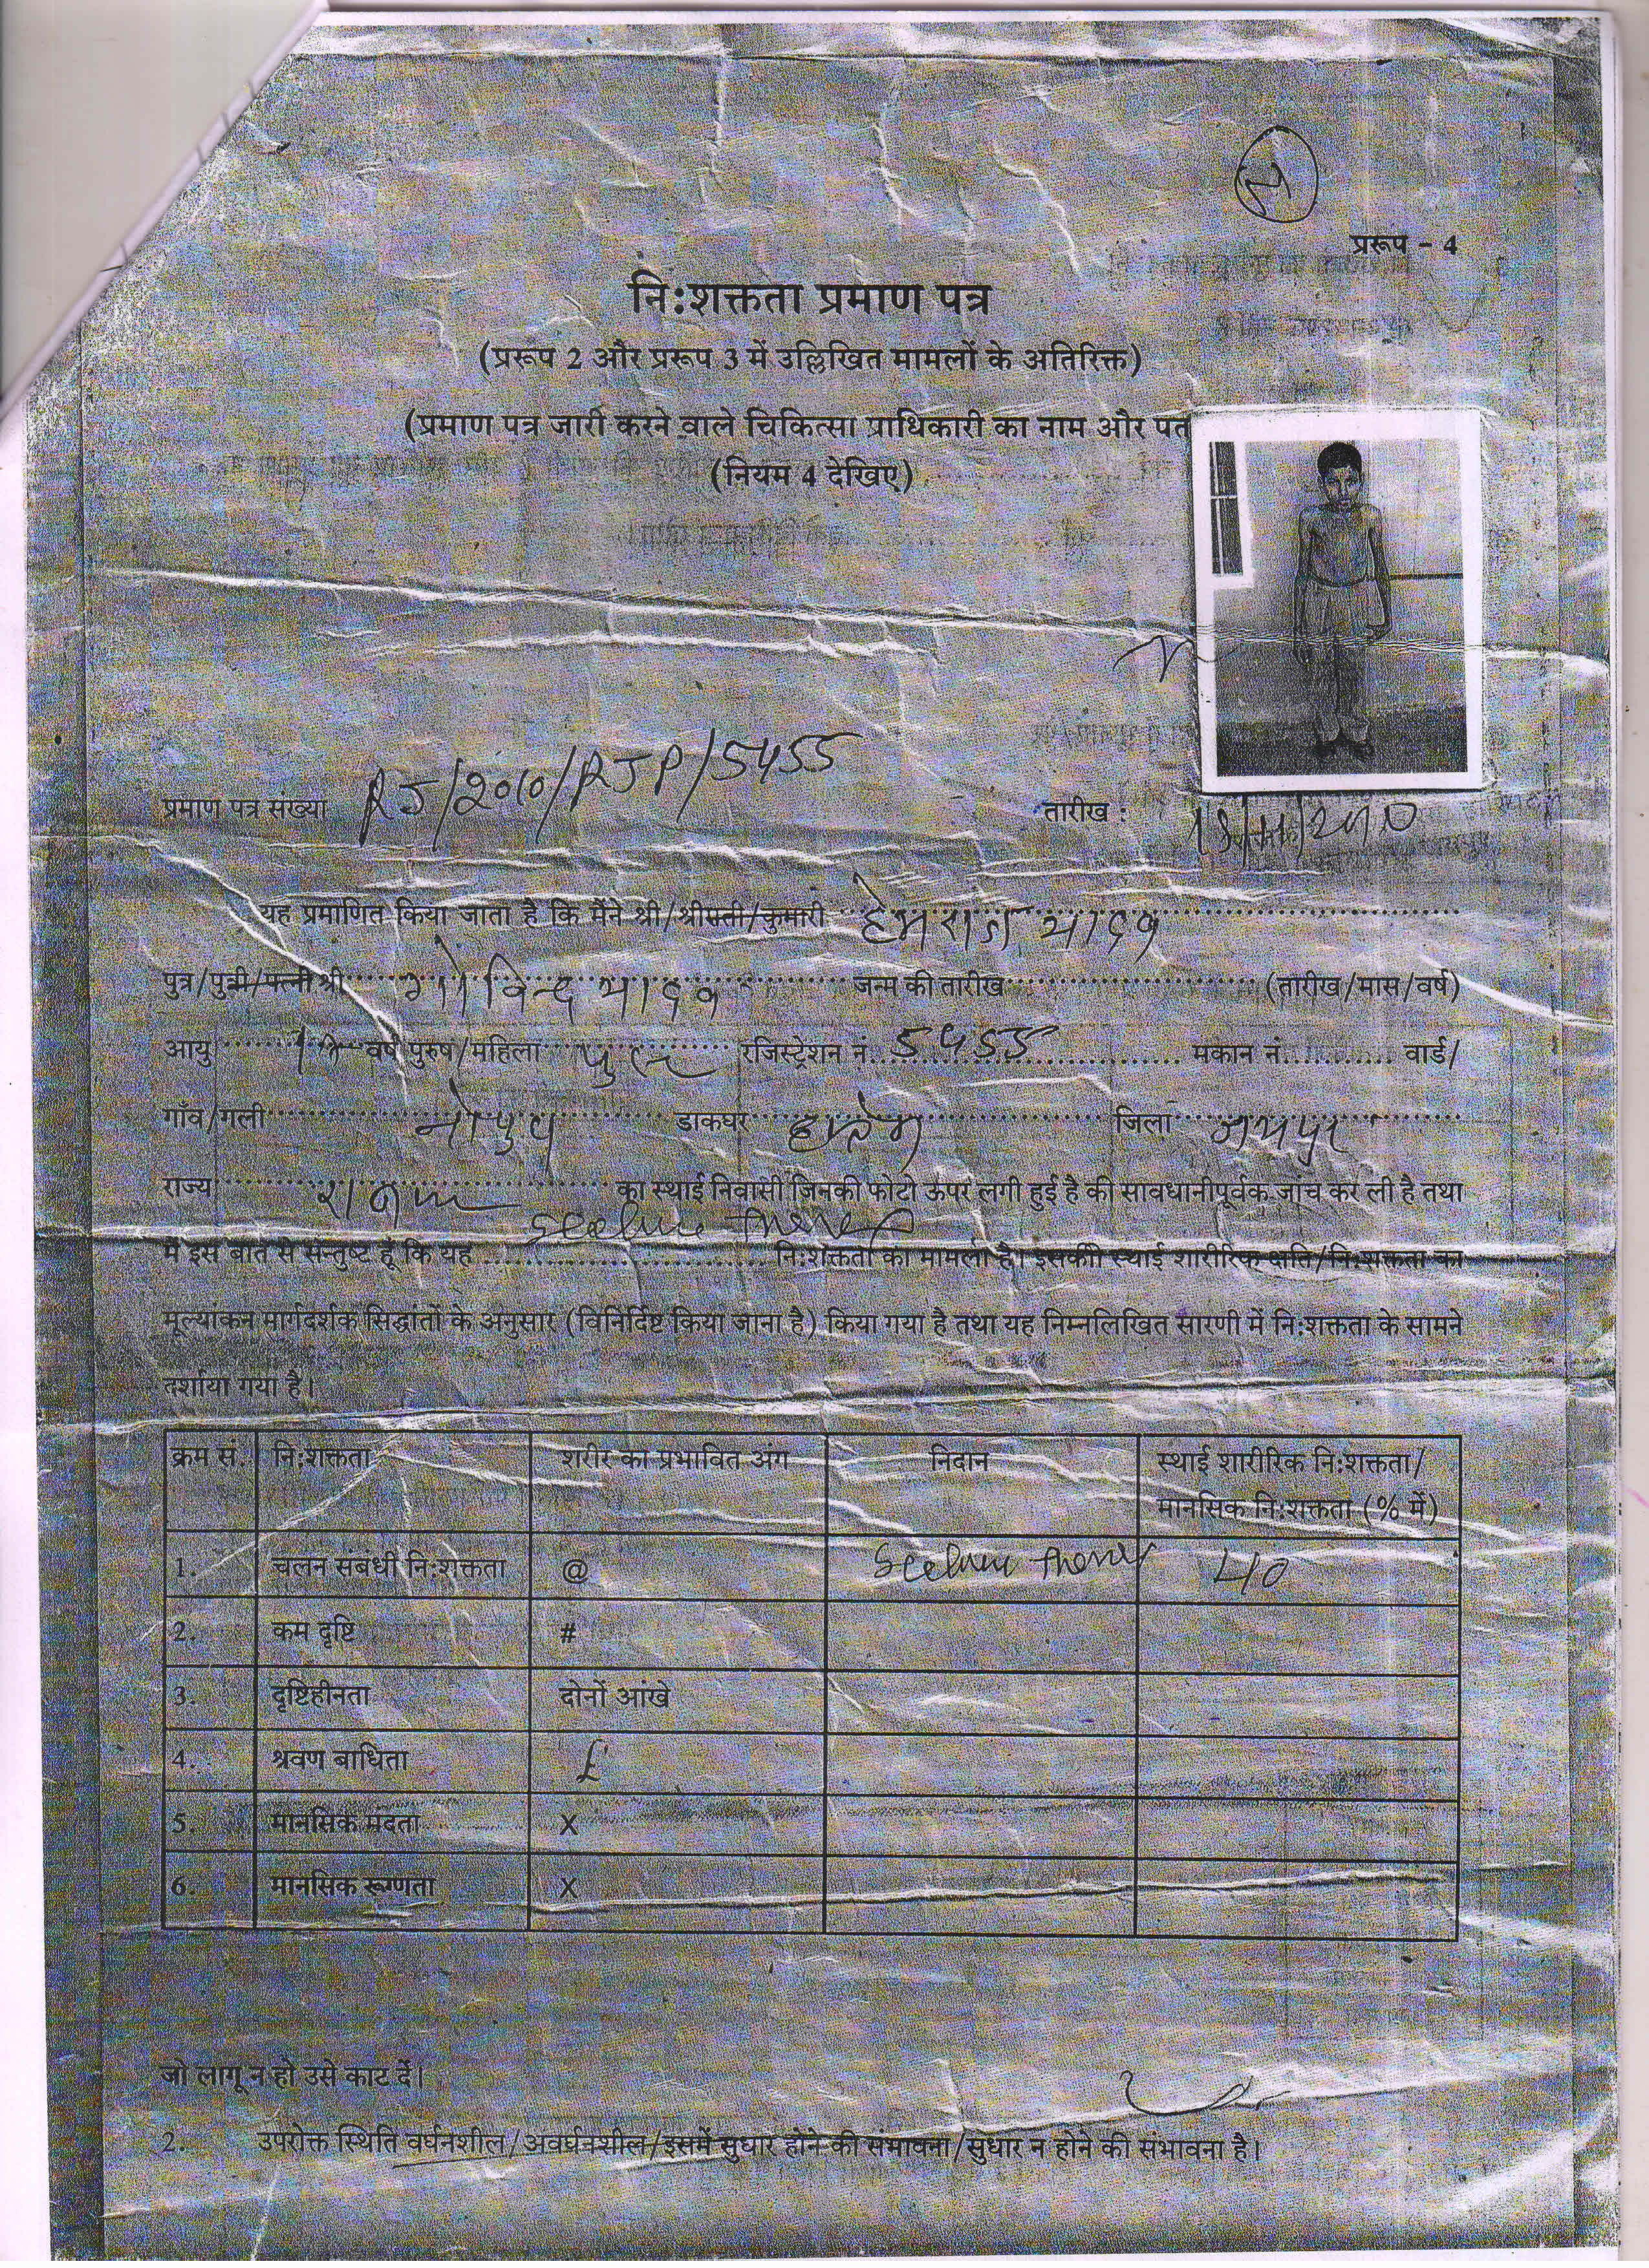 प्ररूप - 4
नि:शक्तता प्रमाण पत्र
(प्ररूप 2 और प्ररूप 3 में उल्लिखित मामलों के अतिरिक्त)
(प्रमाण पत्र जारी करने वाले चिकित्सा प्राधिकारी का नाम और पत
(नियम 4 देखिए)
प्रमाण पत्र संख्या RJ/2010/RJP/5455 तारीख : /11/2010
यह प्रमाणित किया जाता है कि मैंने श्री/श्रीमती/कुमारी हेमराज यादव
पुत्र/पुत्री/पत्नी श्री गोविन्द यादव जन्म की तारीख (तारीख/मास/वर्ष)
आयु वर्ष पुरुष/महिला रजिस्ट्रेशन नं. 5455 मकान नं. वार्ड/
गाँव/गली डाकघर जिला जयपुर
राज्य का स्थाई निवासी जिनकी फोटो ऊपर लगी हुई है की सावधानीपूर्वक जांच कर ली है तथा
मैं इस बात से सन्तुष्ट हूं कि यह नि:शक्तता का मामला है। इसकी स्थाई शारीरिक क्षति/नि:शक्तता का
मूल्यांकन मार्गदर्शक सिद्धांतों के अनुसार (विनिर्दिष्ट किया जाना है) किया गया है तथा यह निम्नलिखित सारणी में नि:शक्तता के सामने
दर्शाया गया है।
क्रम सं. नि:शक्तता शरीर का प्रभावित अंग निदान स्थाई शारीरिक नि:शक्तता/
मानसिक नि:शक्तता (% में)
1. चलन संबंधी नि:शक्तता @ 40
2. कम दृष्टि #
3. दृष्टिहीनता दोनों आंखे
4. श्रवण बाधिता £
5. मानसिक मंदता X
6. मानसिक रूग्णता X
जो लागू न हो उसे काट दें।
2. उपरोक्त स्थिति वर्घनशील/अवर्घनशील/इसमें सुधार होने की संभावना/सुधार न होने की संभावना है।